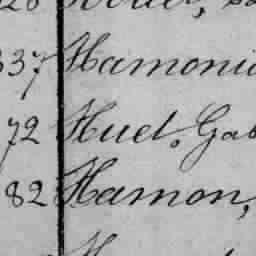 337 Hamonic
72 Huet, Gab
82 Hamon,